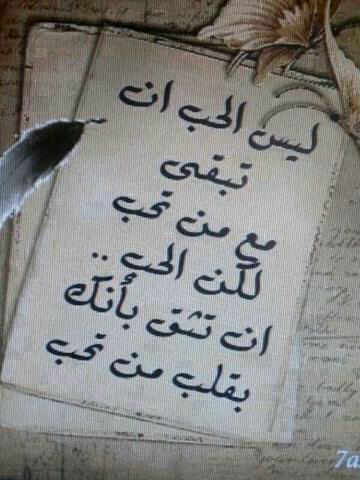 ليس الحب ان
تبقى
مع من تحب
لكن الحب ..
ان تثق بأنك
بقلب من تحب
7a